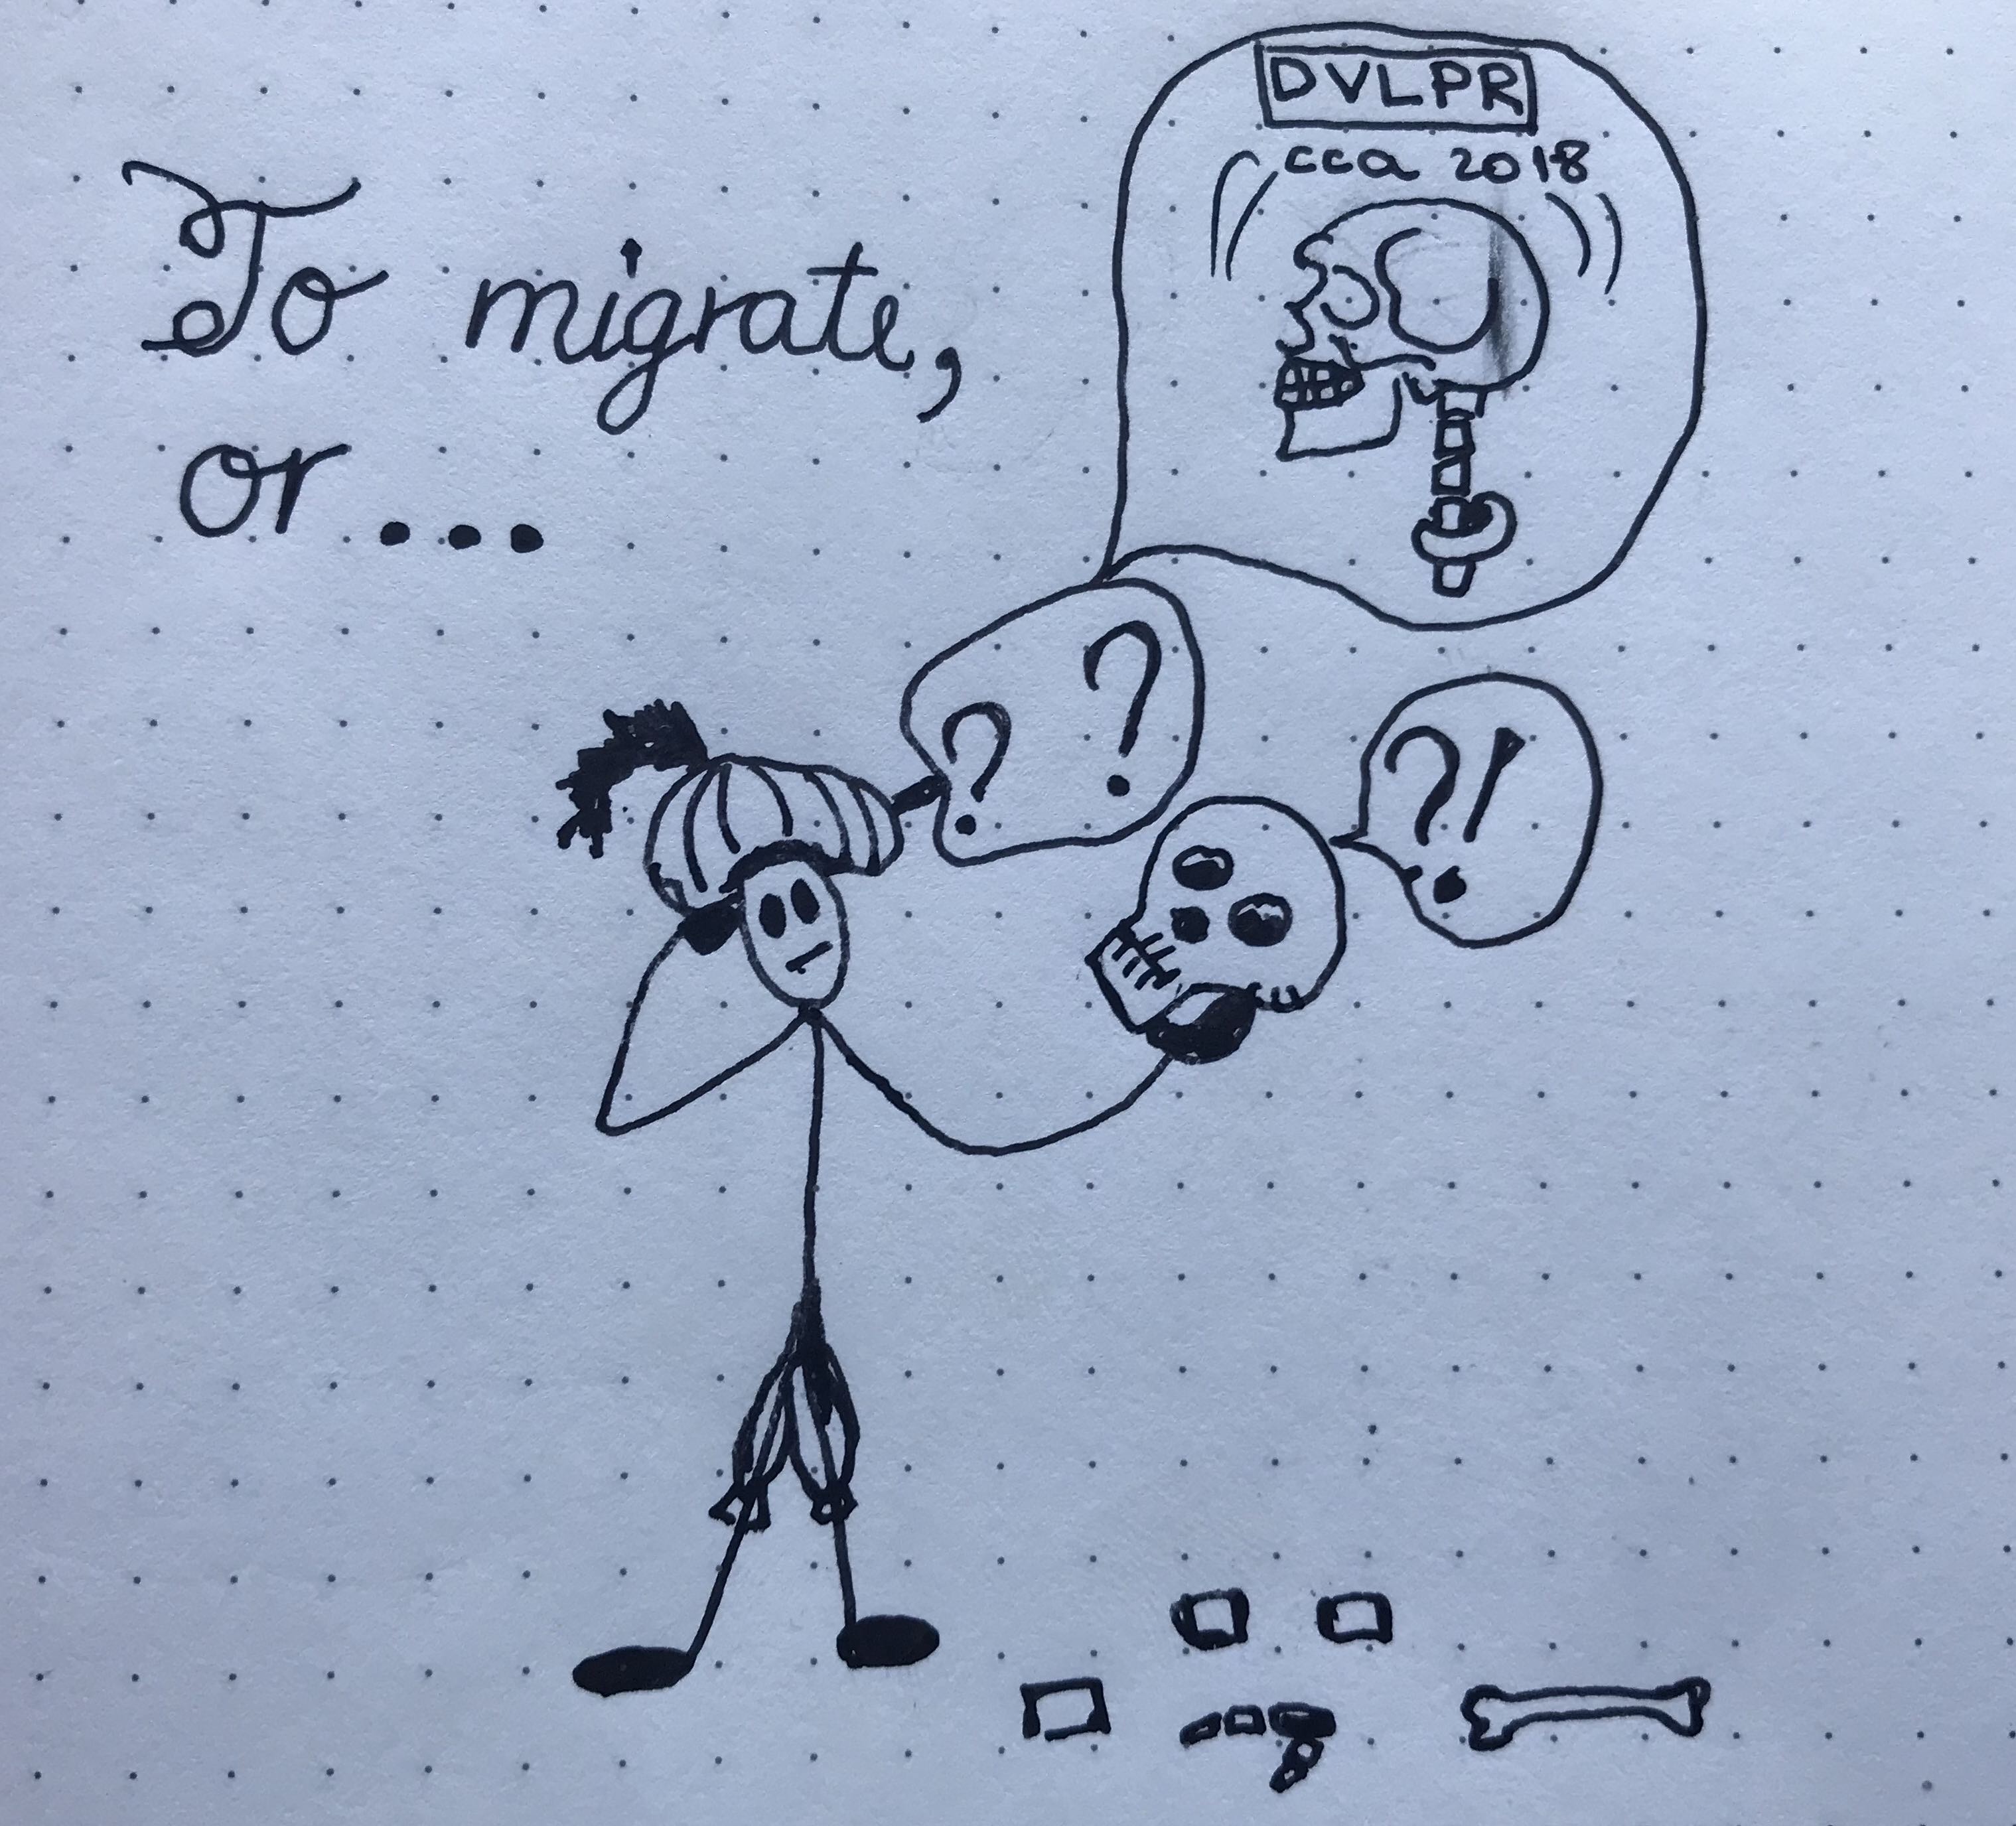 To migrate,
or...
DVLPR
cca 2018
? ?
?!